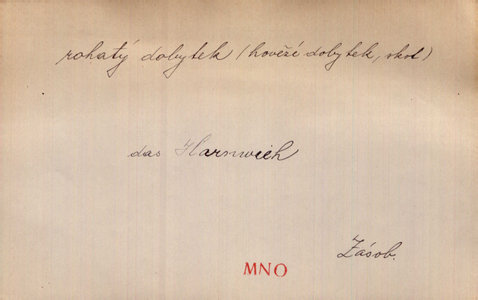 rohatý dobytek (hovězí dobytek, skot)
das Harnwieh
Zásob.
MNO